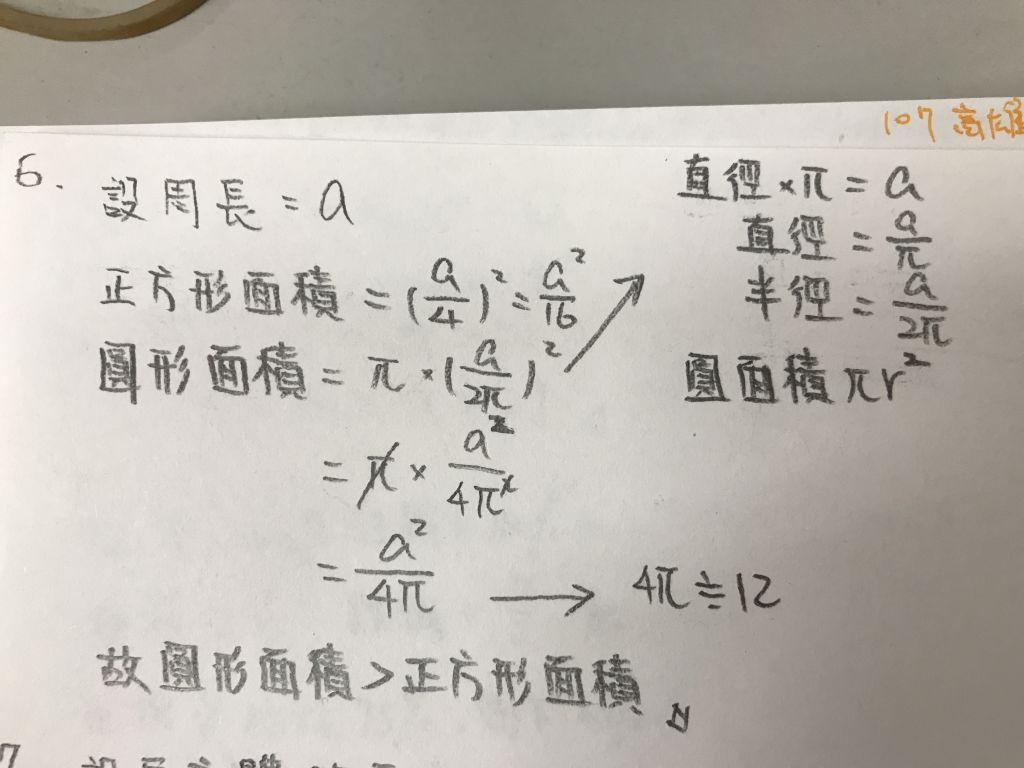 107 高雄
6. 設周長 = a
正方形面積 = (a/4)² = a²/16
圓形面積 = π × (a/2π)²
= π × a²/4π²
= a²/4π → 4π ≒ 12
故圓形面積 > 正方形面積
直徑 × π = a
直徑 = a/π
半徑 = a/2π
圓面積 πr²
7